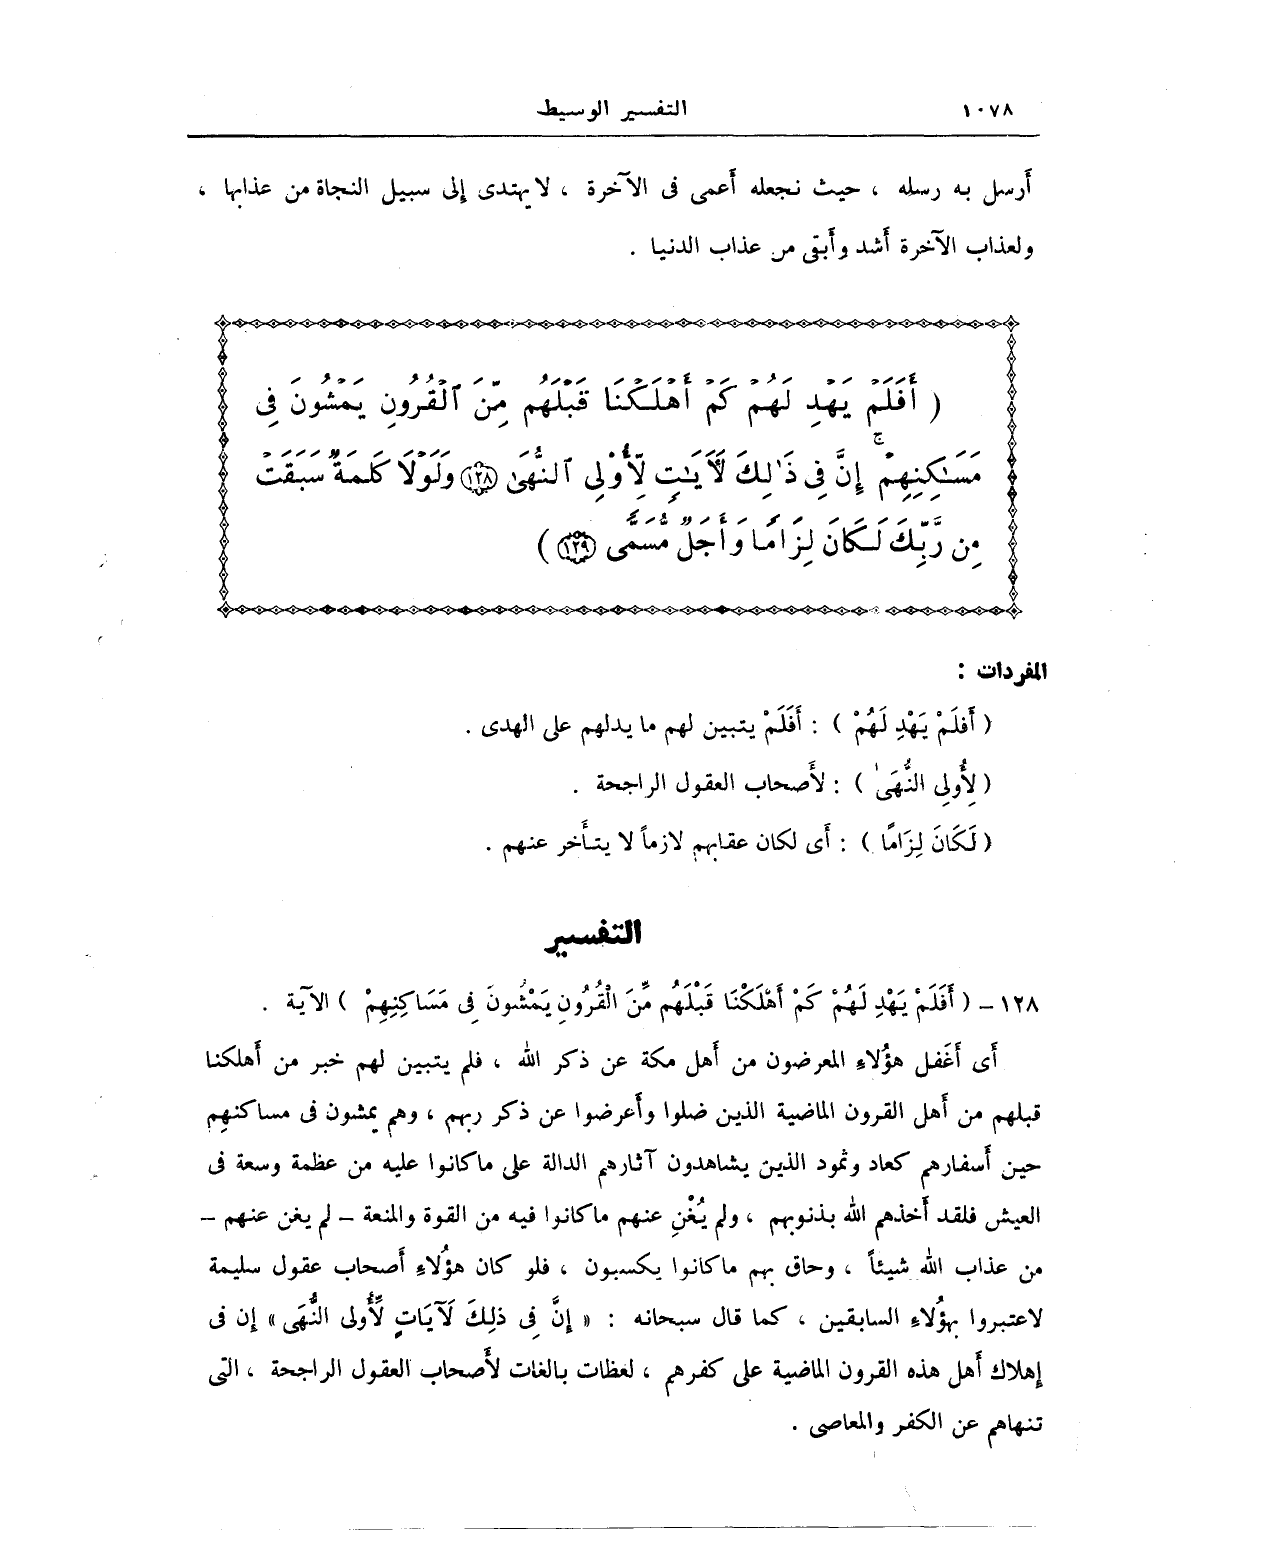 ١٠٧٨ التفسير الوسيط
أَرسل به رسله ، حيث نجعله أَعمى فى الآخرة ، لا يهتدى إلى سبيل النجاة من عذابها ،
ولعذاب الآخرة أَشد وأَبقى من عذاب الدنيا .
( أَفَلَمْ يَهْدِ لَهُمْ كَمْ أَهْلَكْنَا قَبْلَهُم مِّنَ ٱلْقُرُونِ يَمْشُونَ فِى
مَسَـٰكِنِهِمْ ۚ إِنَّ فِى ذَٰلِكَ لَآيَـٰتٍ لِّأُوْلِى ٱلنُّهَىٰ ١٢٨ وَلَوْلَا كَلِمَةٌ سَبَقَتْ
مِن رَّبِّكَ لَكَانَ لِزَامًا وَأَجَلٌ مُّسَمًّى ١٢٩ )
المفردات :
( أَفَلَمْ يَهْدِ لَهُمْ ) : أَفَلَمْ يتبين لهم ما يدلهم على الهدى .
( لِأُولِى النُّهَىٰ ) : لأَصحاب العقول الراجحة .
( لَكَانَ لِزَامًا ) : أَى لكان عقابهم لازماً لا يتأَخر عنهم .
التفسير
١٢٨ – ( أَفَلَمْ يَهْدِ لَهُمْ كَمْ أَهْلَكْنَا قَبْلَهُم مِّنَ الْقُرُونِ يَمْشُونَ فِى مَسَاكِنِهِمْ ) الآية .
أَى أَغَفل هؤُلاءِ المعرضون من أَهل مكة عن ذكر الله ، فلم يتبين لهم خبر من أَهلكنا
قبلهم من أَهل القرون الماضية الذين ضلوا وأَعرضوا عن ذكر ربهم ، وهم يمشون فى مساكنهم
حين أَسفارهم كعاد وثمود الذين يشاهدون آثارهم الدالة على ما كانوا عليه من عظمة وسعة فى
العيش فلقد أَخذهم الله بذنوبهم ، ولم يُغْنِ عنهم ما كانوا فيه من القوة والمنعة – لم يغن عنهم –
من عذاب الله شيئاً ، وحاق بهم ما كانوا يكسبون ، فلو كان هؤُلاءِ أَصحاب عقول سليمة
لاعتبروا بهؤُلاءِ السابقين ، كما قال سبحانه : « إِنَّ فِى ذلِكَ لَآيَاتٍ لِّأُولى النُّهَى » إن فى
إهلاك أَهل هذه القرون الماضية على كفرهم ، لعظات بالغات لأَصحاب العقول الراجحة ، التى
تنهاهم عن الكفر والمعاصى .